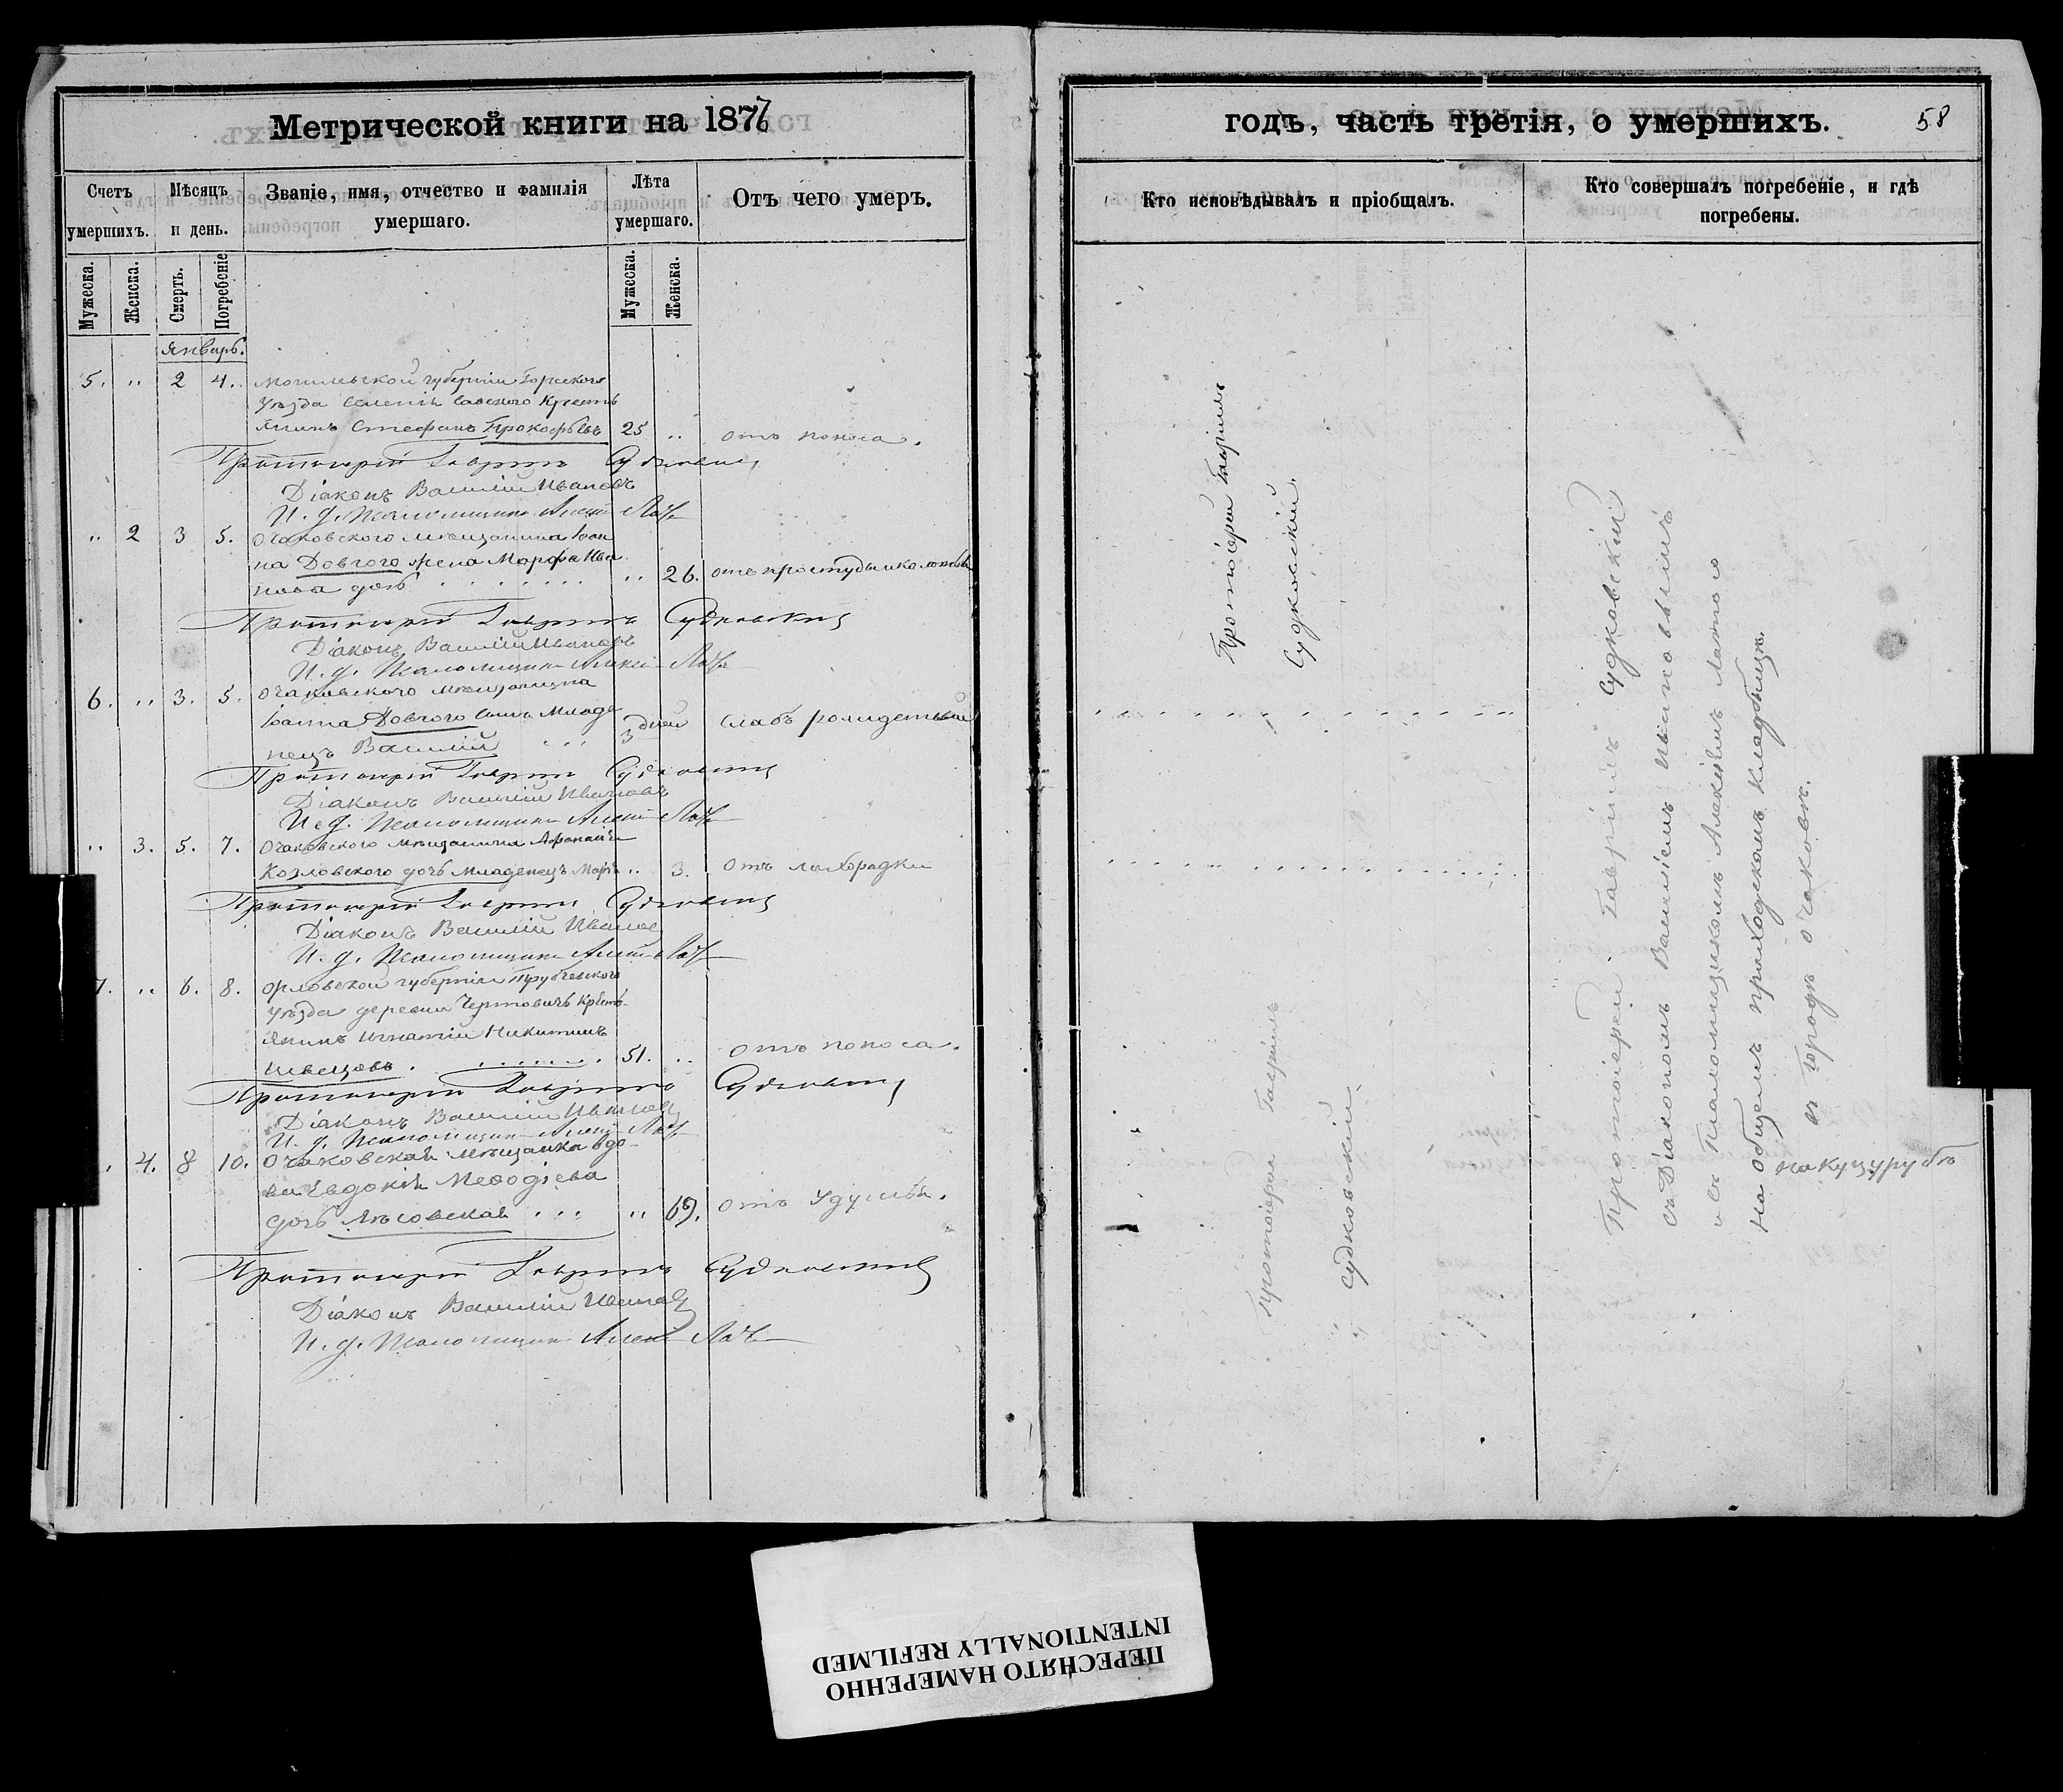 Метрической книги на 1877
Счетъ умершихъ.
Мѣсяцъ и день.
Званіе, имя, отчество и фамилія умершаго.
Лѣта умершаго.
Отъ чего умеръ.
Мужеска. Женска. Смерть. Погребеніе Мужеска. Женска.
Январь.
5. " 2 4. Могилевской губерніи Горецкого
Уѣзда Селенія Савского Кресть
янинъ Стефанъ Прокофьевъ 25 " отъ поноса.
Протоіерей Гавріилъ Судковскій
Діаконъ Василій Ивановъ
И. д. Псаломщика Алексій
" 2 3 5. Очаковского мѣщанина Іоан
на Довгого жена Марфа Ива
нова дочь " 26. отъ простуды
Протоіерей Гавріилъ Судковскій
Діаконъ Василій Ивановъ
И. д. Псаломщика Алексій
6. " 3. 5. Очаковского мѣщанина
Іоанна Довгого сынъ Младе
нецъ Василій 3 дней слабъ рожденный
Протоіерей Гавріилъ Судковскій
Діаконъ Василій Ивановъ
И. д. Псаломщика Алексій
" 3. 5. 7. Очаковского мѣщанина Афанасія
Козловского дочь Младенецъ Марія " 3. отъ лихорадки
Протоіерей Гавріилъ Судковскій
Діаконъ Василій Ивановъ
И. д. Псаломщика Алексій
7. " 6. 8. Орловской губерніи Трубчевского
Уѣзда деревни Чертовичъ Кресть
янинъ Игнатій Никитинъ
Швецовъ. 51. " отъ поноса.
Протоіерей Гавріилъ Судковскій
Діаконъ Василій Ивановъ
И. д. Псаломщика Алексій
4. 8 10. Очаковская мѣщанка вдо
ва Евдокія Меѳодіева
дочь Лѣсовская " 69. отъ удушья.
Протоіерей Гавріилъ Судковскій
Діаконъ Василій Ивановъ
И. д. Псаломщика Алексій
годъ, часть третія, о умершихъ. 58
Кто исповѣдывалъ и пріобщалъ.
Кто совершалъ погребеніе, и гдѣ погребены.
Протоіерей Гавріилъ
Судковскій.
Протоіерей Гавріилъ
Судковскій
Протоіерей Гавріилъ Судковскій
съ Діакономъ Василіемъ Ивановымъ
и съ Псаломщикомъ Алексіемъ
На общемъ приходскомъ кладбищѣ.
въ Городѣ Очаковѣ.
на Куцурубѣ
ПЕРЕСНЯТО НАМЕРЕННО
INTENTIONALLY REFILMED